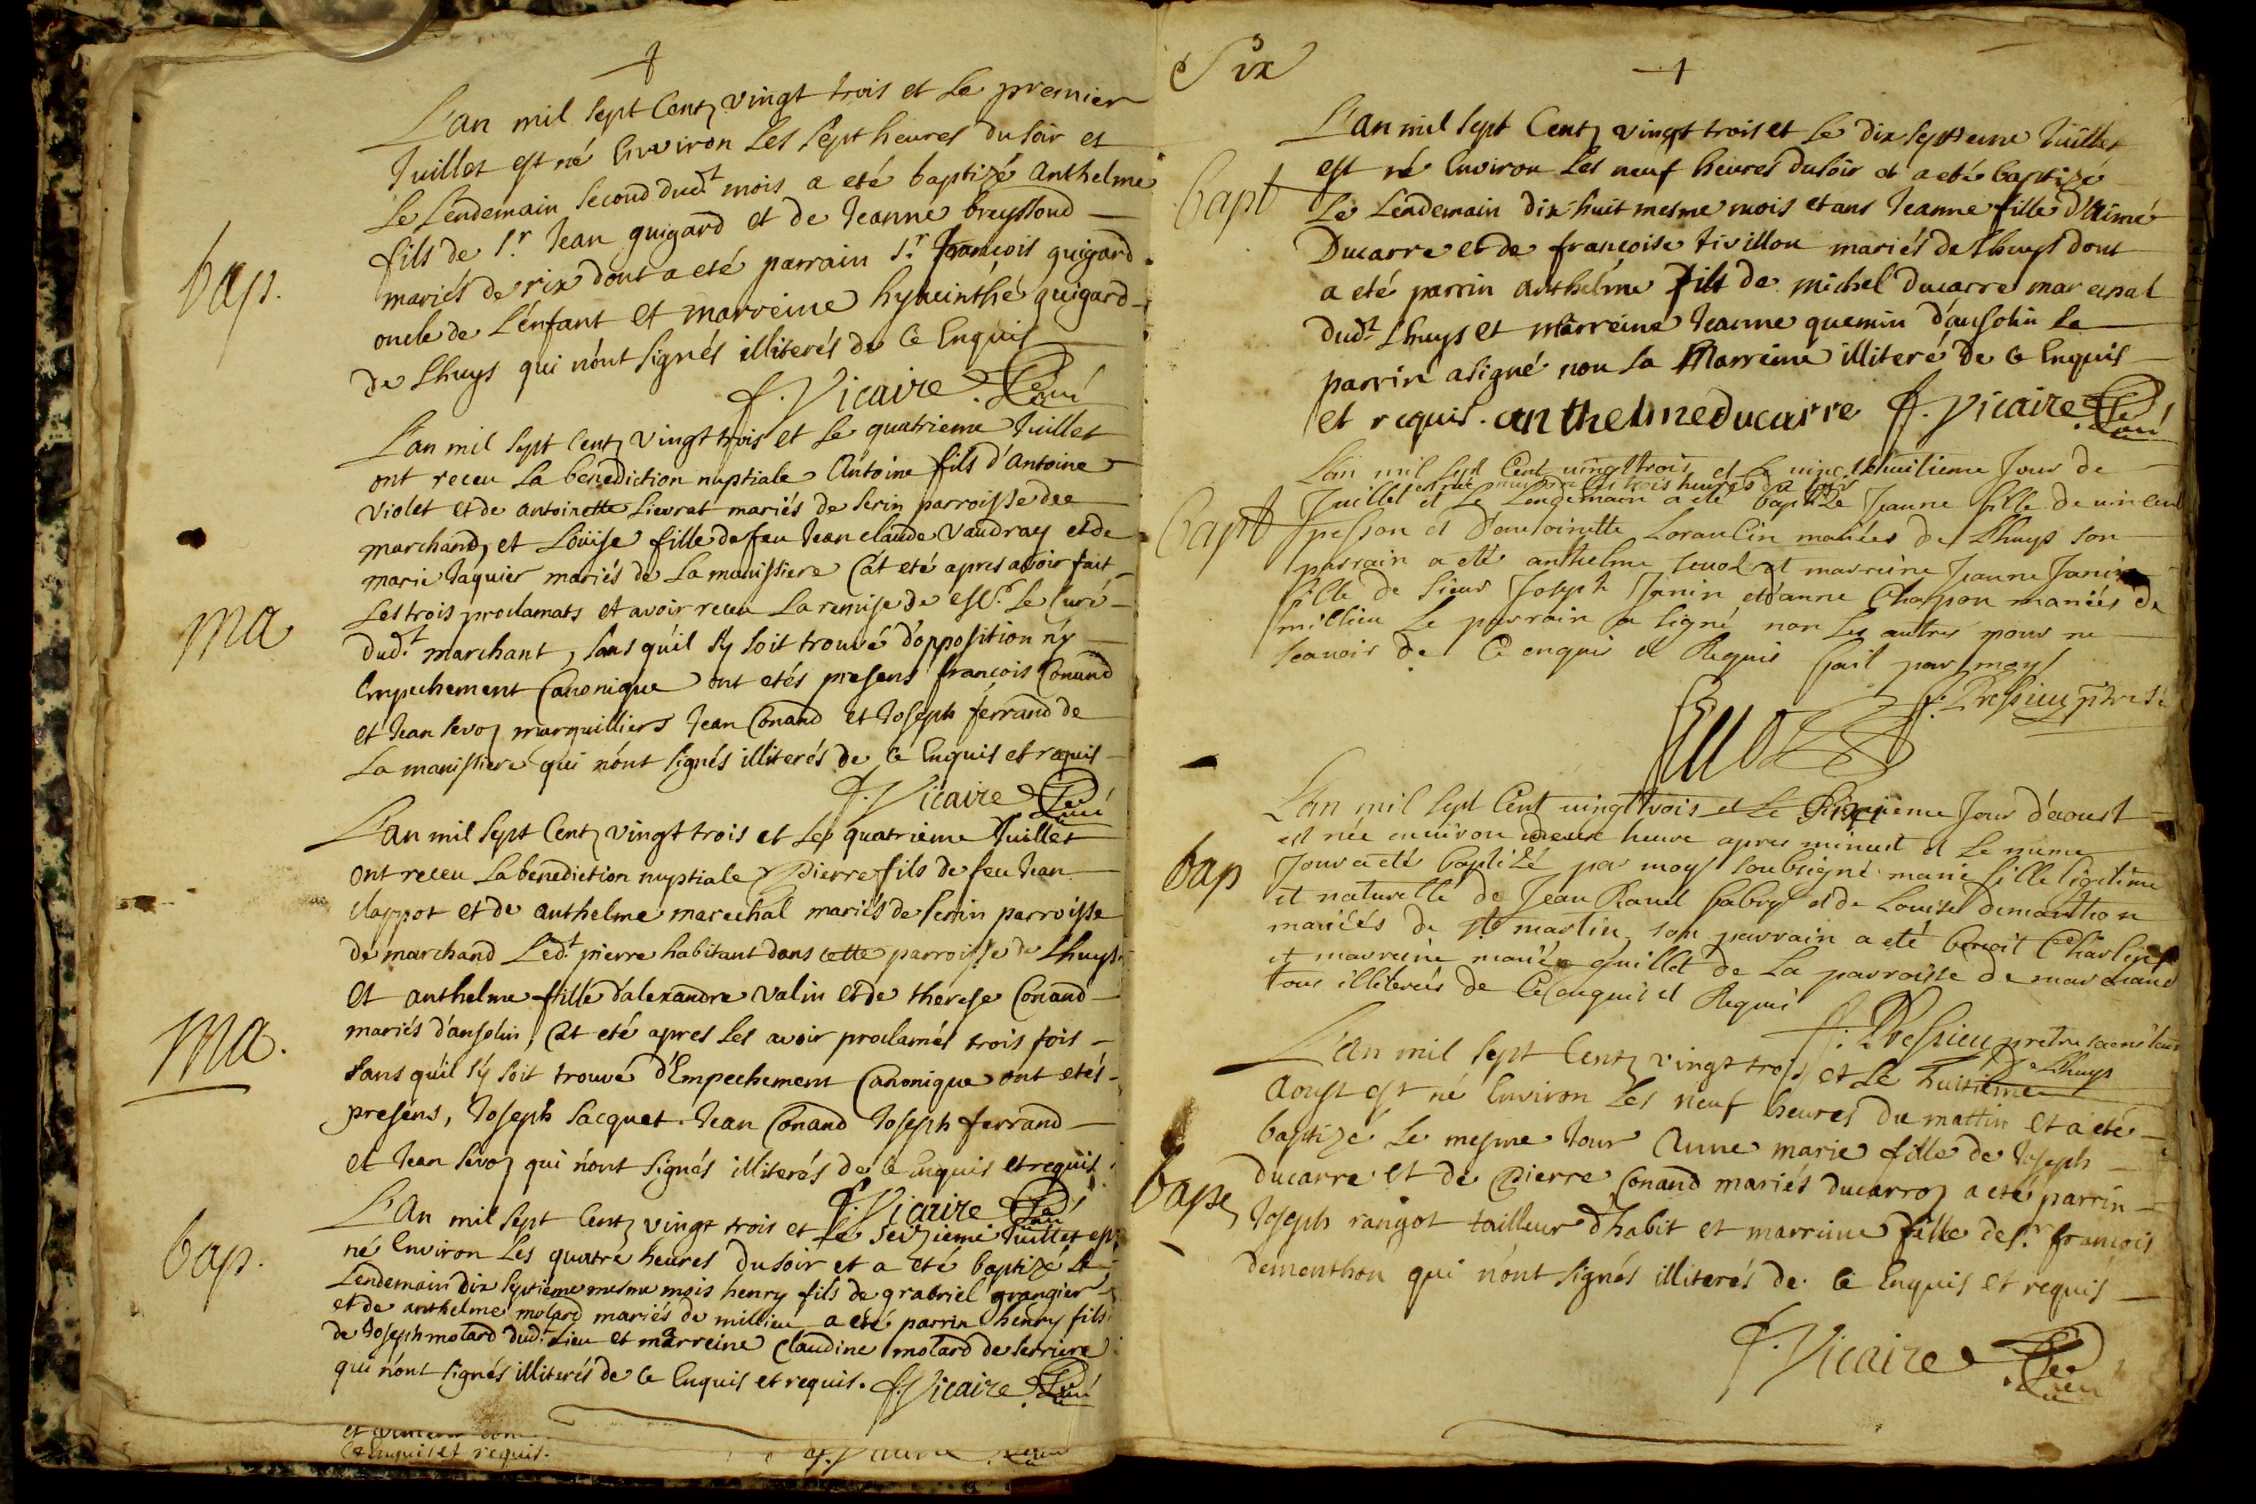 L'an mil sept Centz vingt trois et Le premier
Juillet est né Environ Les sept heures du soir et
Le Lendemain second dud.t mois a eté baptizé anthelme
bap.
fils de S.r Jean guigard et de Jeanne breyssoud
mariés de rix dont a eté parrain S.r françois guigard
oncle de L'enfant et marreine hyacinthe guigard
de Lhuys qui n'ont signés illiterés de Ce Enquis
f. Vicaire Curé
L'an mil sept Centz vingt trois et Le quatrieme Juillet
ont receu La benediction nuptiale Antoine fils d'Antoine
violet et de antoinette Sievrat mariés de Serin parroisse de
marchand, et Loüise fille de feu Jean claude Vaudray et de
marie Jaquier mariés de La manissiere C'at eté apres avoir fait
ma
Les trois proclamats et avoir receu La remise de Le Curé
dud.t marchant, sans qu'il sy soit trouvé d'opposition n'y
Empechement Canonique ont etés presens françois Conand
et Jean Sevoz marquilliers Jean Conand et Joseph ferrand de
La manissiere qui n'ont signés illiterés de Ce Enquis et requis
f. Vicaire Curé
L'an mil sept Centz vingt trois et Le quatrieme Juillet
ont receu La benediction nuptiale Pierre fils de feu Jean
clappot et de anthelme marechal mariés de Serin parroisse
de marchand Led.t pierre habitant dans cette parroisse de Lhuys
Et anthelme fille d'alexandre Valin et de therese Conand
ma.
mariés d'ansolin, C'at eté apres Les avoir proclamés trois fois
sans qu'il sy soit trouvé d'Empechement Canonique ont etés
presens, Joseph Sacquet. Jean Conand Joseph ferrand
et Jean Sevoz qui n'ont signés illiterés de Ce Enquis et requis
f. Vicaire Curé
L'An mil sept Centz vingt trois et Le seizieme Juillet est
bap.
né Environ Les quatre heures du soir et a eté baptizé Le
Lendemain dix septieme mesme mois henry fils de grabriel grangier
et de anthelme molard mariés de millieu a eté parrin henry fils
de Joseph molard dud.t Lieu et marreine Claudine molard de Serriere
qui n'ont signés illiterés de Ce Enquis et requis. f. Vicaire Curé
Ce Enquis et requis.
Six
L'an mil sept Centz vingt trois et Le dix septieme Juillet
est né Environ Les neuf heures du soir et a eté baptizé
bapt
Le Lendemain dix huit mesme mois et ans Jeanne fille d'Aimé
Ducarre et de françoise Tivillon mariés de Lhuys dont
a eté parrin anthelme fils de michel ducarre marechal
dud.t Lhuys et marreine Jeanne quemin d'ansolin Le
parrin a signé non La Marreine illiteré de Ce Enquis
et requis. anthelme ducarre f. Vicaire Curé
L'an mil sept Cent vingt trois et Le vingt huitieme Jour de
Juillet est née environ les trois heures du soir
et Le Lendemain a eté baptizé Jeanne fille de vincent
bapt
pesson et d'antoinette Loraulin mariées de Lhuys son
parrain a eté anthelme sevoz et marreine Jeanne Janin
fille de sieur Joseph Janin et d'anne Chapon mariés de
millieu Le parrain a signé non Les autres pour ne
scavoir de Ce enquis et Requis fait par moy
f. Pressieu ptre
Sevoz
L'an mil sept Cent vingt trois et Le Jour d'aoust
est née environ deux heure apres minuit et Le meme
bap
Jour a eté baptizé par moy soubsigné marie fille Legitime
et naturelle de Jean Ravel Gabry et de Louise demanthon
mariées de st martin son parrain a eté benoit Charlin
et marreine mariée quillet de La parroisse de marchand
tous illiterés de Ce enquis et Requis
f. Pressieu pretre
de Lhuys
L'an mil sept Centz vingt trois et Le huitieme
Aoust est né Environ Les neuf heures du mattin et a eté
baptizé Le mesme Jour Anne marie fille de Joseph
ducarre et de Pierre Conand mariés ducarroz a eté parrin
bap
Joseph rangot tailleur d'habit et marreine fille de S.r françois
dementhon qui n'ont signés illiterés de Ce Enquis et requis
f. Vicaire Curé